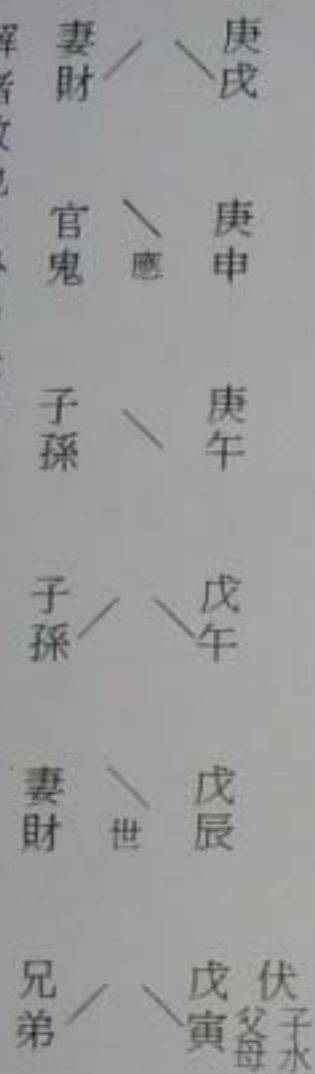 庚戌 妻財
庚申 應 官鬼
庚午 子孫
戊午 子孫
戊辰 世 妻財
伏 子水 父母 戊寅 兄弟
解者散也